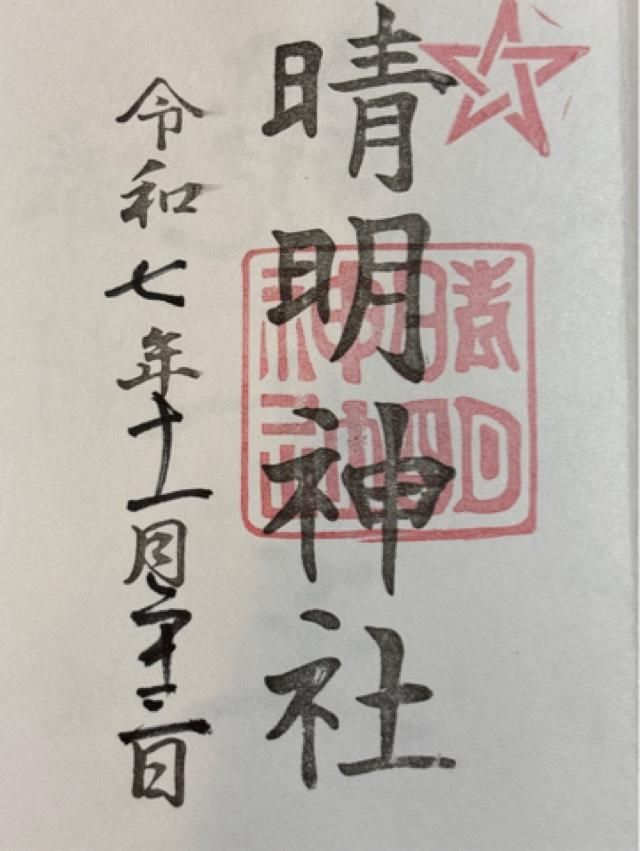 晴明神社
晴明神社
令和七年十一月二十三日